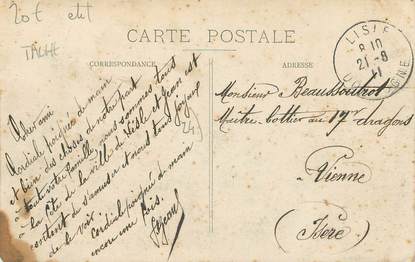 20€ état
TACHE
CARTE POSTALE
CORRESPONDANCE
ADRESSE
LISLE
8 10
21-8
11
DORDOGNE
Cher ami
Cordiale poignée de main
et bien des choses de notre part
à toute votre famille, nous sommes tous
à la fête de la ville de Lisle et Jean est
content de s'amuser et nous tous joyeux
de le voir.
Cordiale poignée de main
encore une fois.
Monsieur Beaussoutrot
Maître-bottier au 17e dragons
Vienne
(Isère)